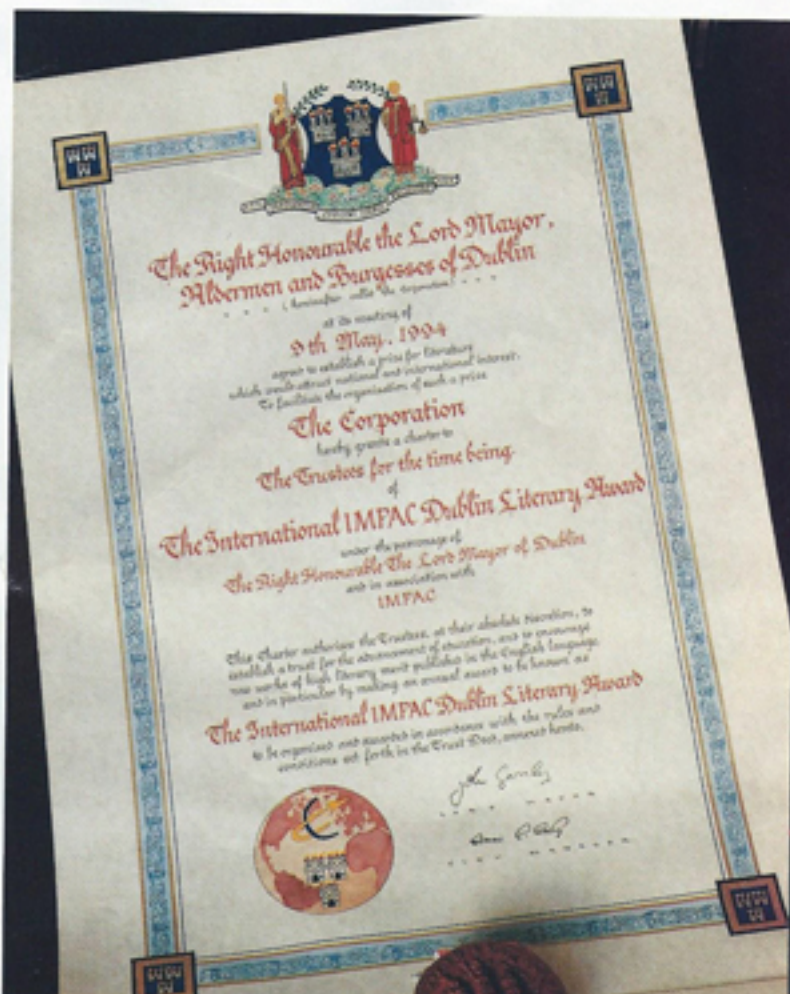 The Right Honourable the Lord Mayor,
Aldermen and Burgesses of Dublin
(hereinafter called the Corporation)
at its meeting of
9th May, 1994
agreed to establish a prize for literature
which would attract national and international interest.
To facilitate the organisation of such a prize
The Corporation
hereby grants a charter to
The Trustees for the time being
of
The International IMPAC Dublin Literary Award
under the patronage of
The Right Honourable The Lord Mayor of Dublin
and in association with
IMPAC
This Charter authorises the Trustees, at their absolute discretion, to
establish a trust for the advancement of education, and to encourage
new works of high literary merit published in the English language,
and in particular by making an annual award to be known as
The International IMPAC Dublin Literary Award
to be organised and awarded in accordance with the rules and
conditions set forth in the Trust Deed, annexed hereto.
LORD MAYOR